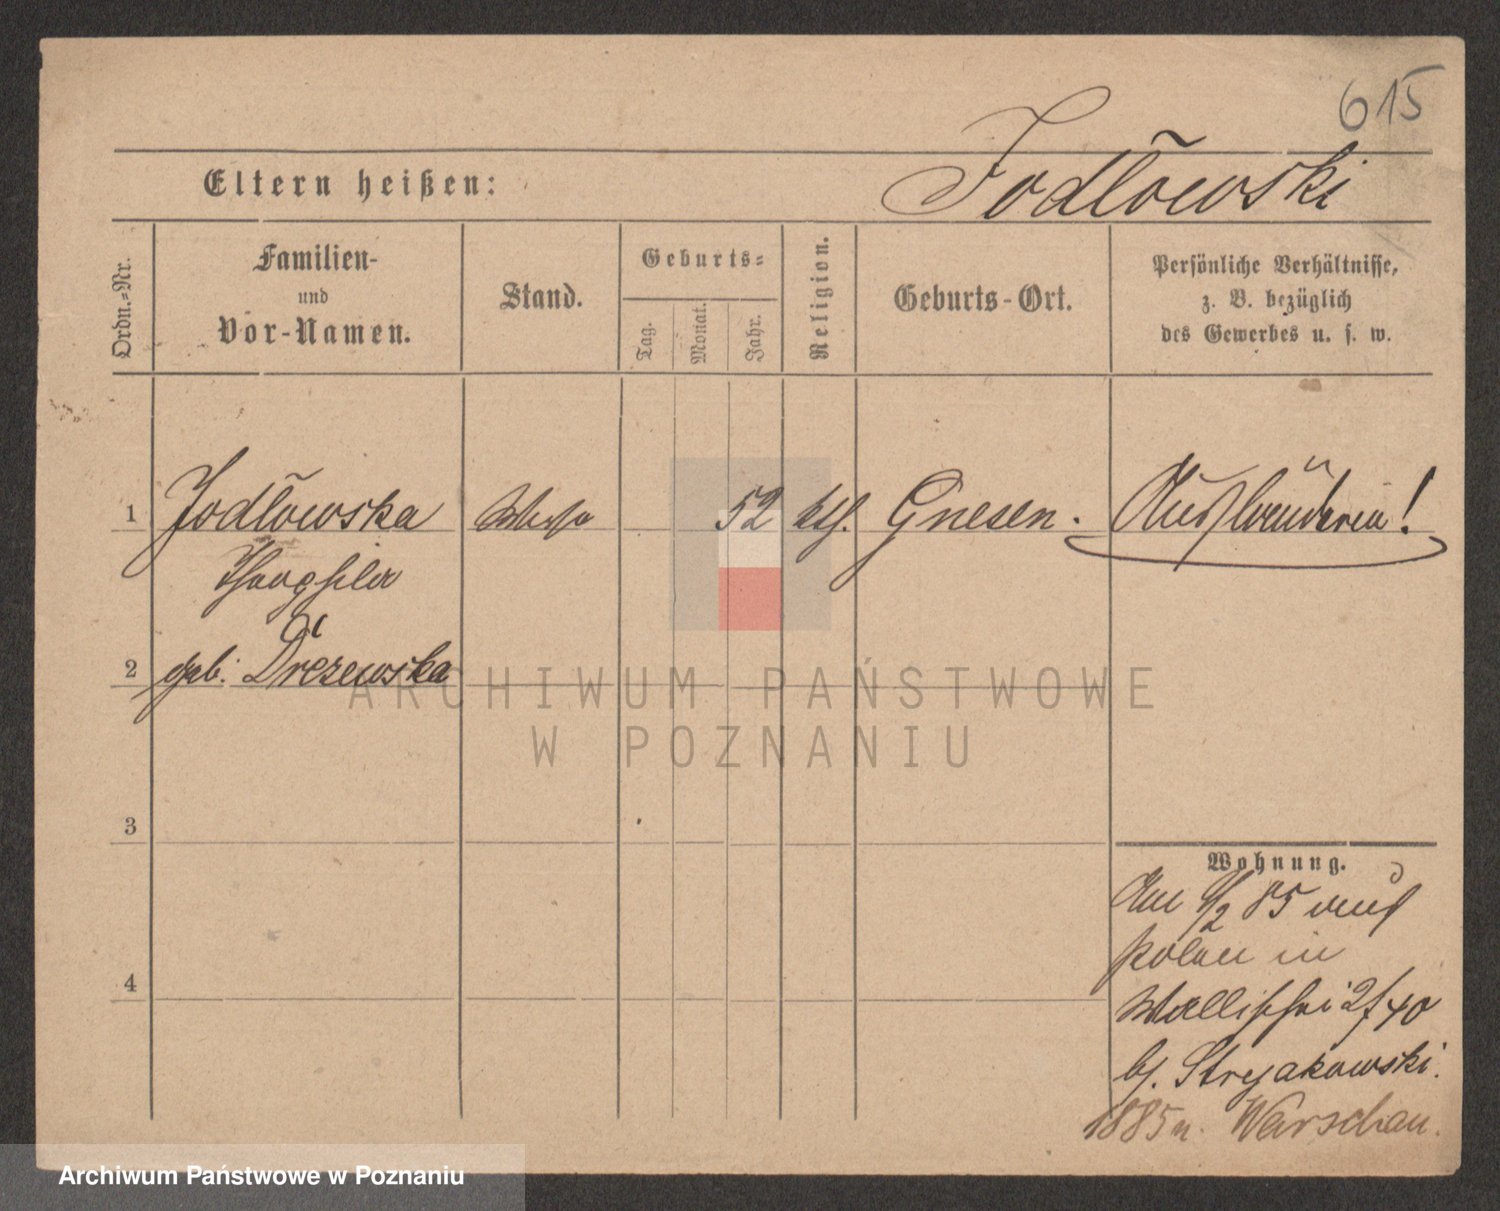 615
Eltern heißen:
Jodlowski
Ordn.-Nr.
Familien-
und
Vor-Namen.
Stand.
Geburts-
Tag.
Monat.
Jahr.
Religion.
Geburts-Ort.
Persönliche Verhältnisse,
z. B. bezüglich
des Gewerbes u. s. w.
1
Jodlowska
52
kth.
Gnesen.
Ausländerin!
2
geb. Drezewska
3
4
Wohnung.
Am 85 aus
Polen in
Wallischei 2/40
b/. Stryakowski.
1885 n. Warschau.
ARCHIWUM PAŃSTWOWE
W POZNANIU
Archiwum Państwowe w Poznaniu